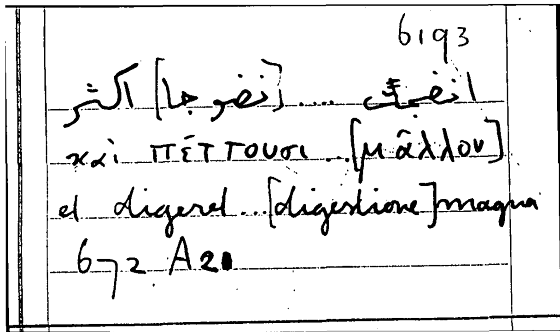 6193
انضجت .... [نضوجا] اكثر
καὶ πέττουσι ... [μᾶλλον]
et digeret ... [digestione] magna
672 A21